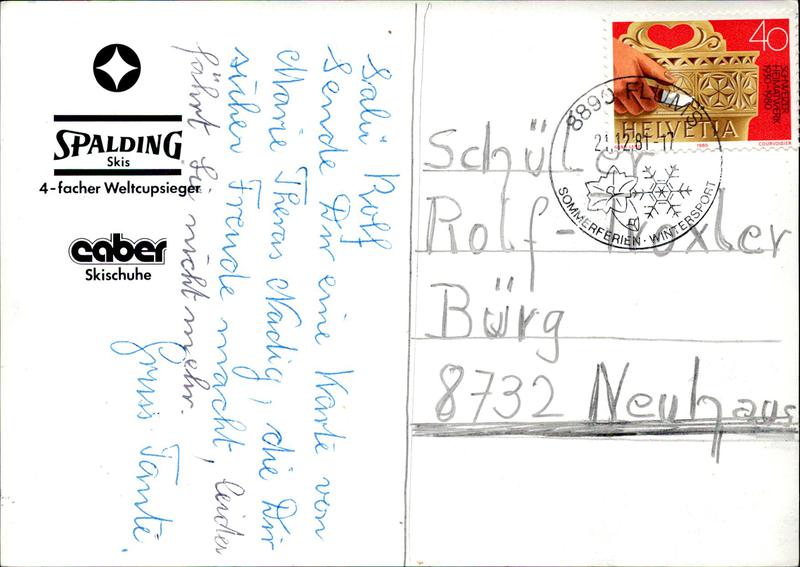 SPALDING
Skis
4-facher Weltcupsieger
caber
Skischuhe
Salü Rolf
Sende Dir eine Karte von
Marie Theras Nadig, die Dir
sicher Freude macht, leider
fährt Sie nicht mehr.
Gruss Tante.
40
SCHWEIZER
HEIMATWERK
1930-1980
HELVETIA
1980
COURVOISIER
8890 FLUMS
21.12.81-17
SOMMERFERIEN · WINTERSPORT
Schüler
Rolf-Troxler
Bürg
8732 Neuhaus